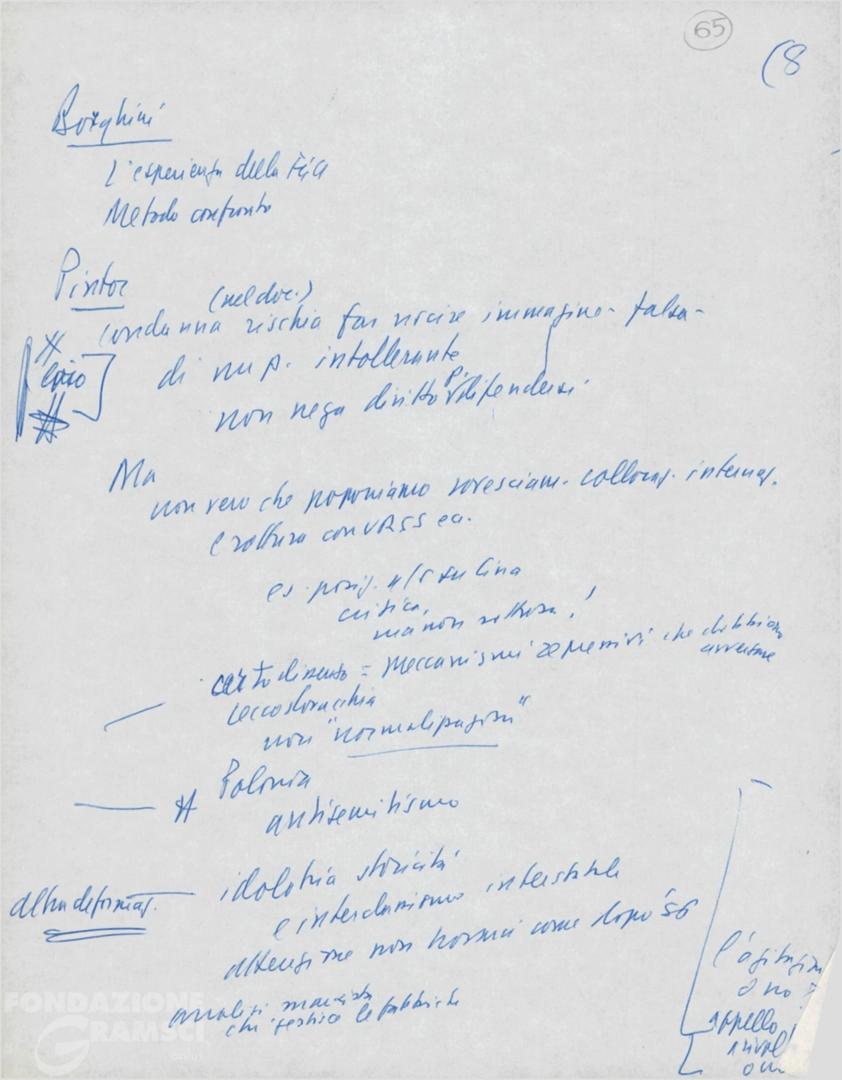 65
(8
Borghini
L'esperienza della FGCI
Metodo confronto
Pintor
(nel doc.)
condanna rischia far uscire immagine falsa
di un p. intollerante
non nega diritto p. difendersi
Ma
non vero che proponiamo rovesciam. collocaz. internaz.
e rottura con URSS ecc.
es. posiz. n/ su Cina
critica,
ma non rottura!
certo dissenso = meccanismi repressivi che dobbiamo
avversare
Cecoslovacchia
non "normalizzazione"
Polonia
antisemitismo
altra deformaz.
idolatria storicità
e interclassismo interstatale
attenzione non tornar come dopo '56
analisi marxista
chi gestisce le fabbriche
l'agitazion
o no
appello
FONDAZIONE
GRAMSCI